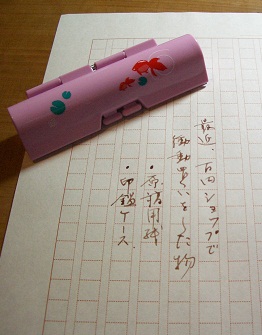 最近、百円ショップで
衝動買いをした物
・原稿用紙
・印鑑ケース